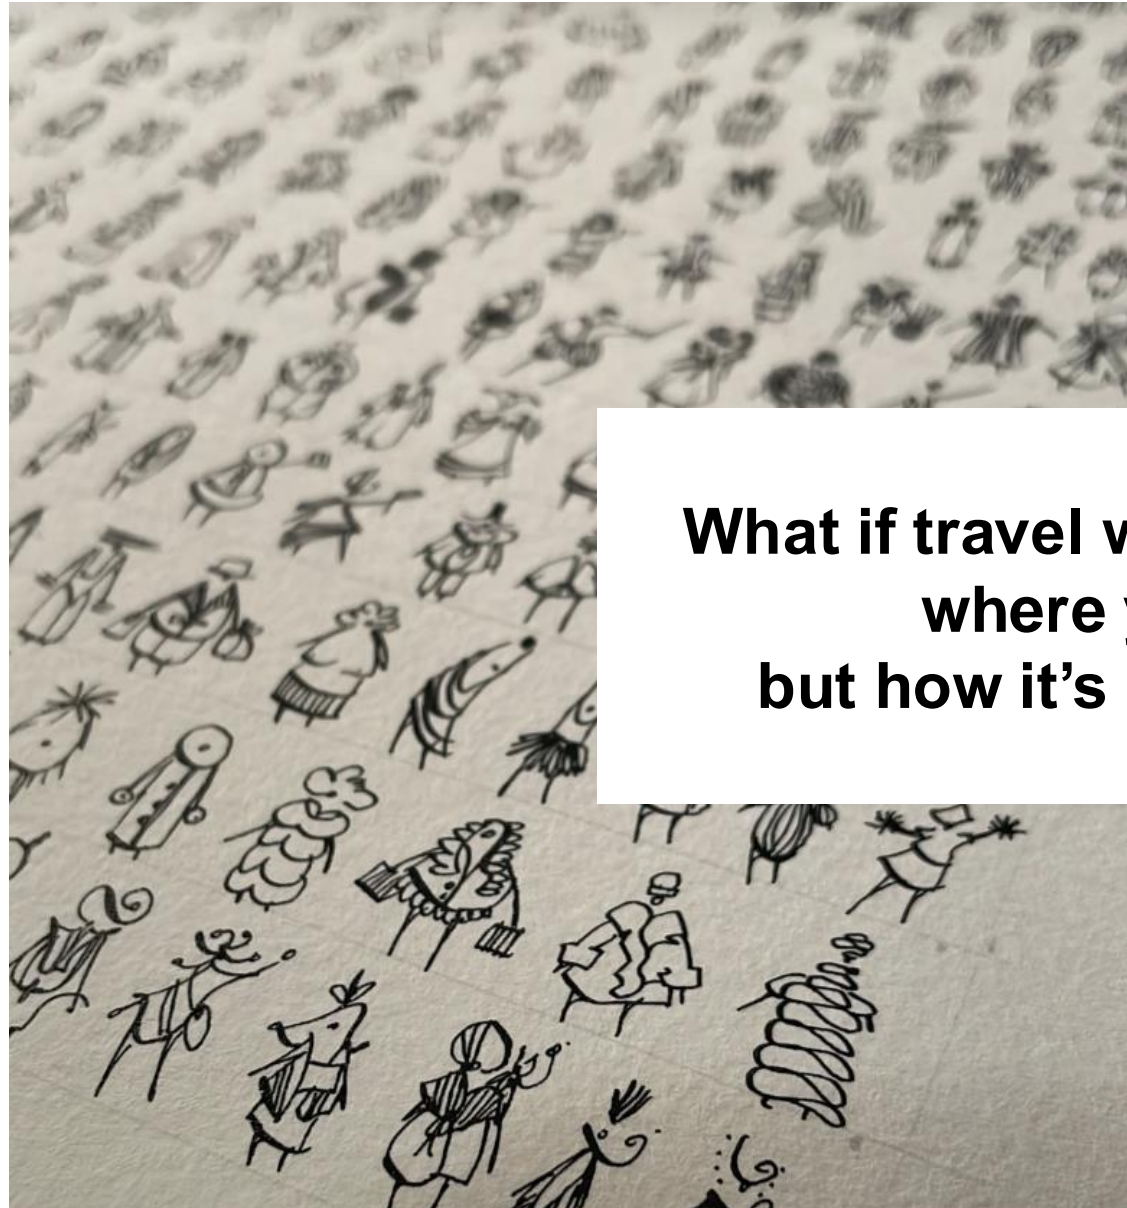 What if travel
where
but how it’s